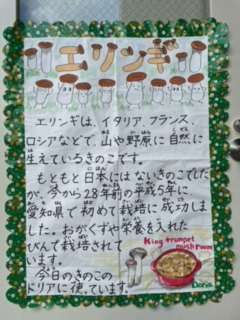 エリンギ
エリンギは、イタリア、フランス、
ロシアなどで、山や野原に自然に
生えているきのこです。
もともと日本にはないきのこでした
が、今から28年前の平成5年に
愛知県で初めて栽培に成功しま
した。おがくずや栄養を入れた
びんで栽培されて
います。
今日のきのこの
ドリアに使っています。
King trumpet
mushroom
Doria